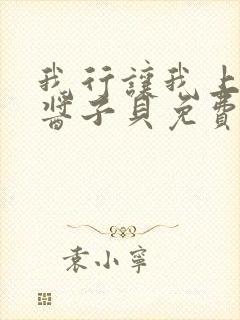 我行讓我上
醬子貝免費
袁小寧